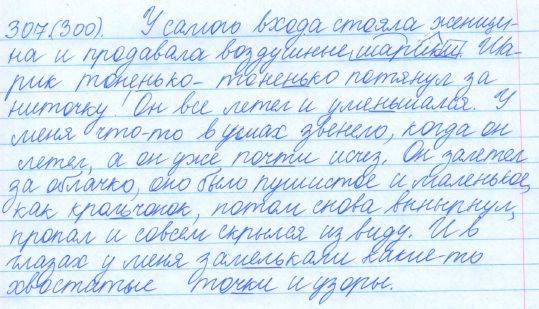 307(300). У самого входа стояла женщи-
на и продавала воздушные шарики. Ша-
рик тоненько-тоненько потянул за
ниточку. Он все летел и уменьшался. У
меня что-то в ушах звенело, когда он
летел, а он уже почти исчез. Он залетел
за облачко, оно было пушистое и маленькое,
как крольчонок, потом снова вынырнул,
пропал и совсем скрылся из виду. И в
глазах у меня замелькали какие-то
хвостатые точки и узоры.